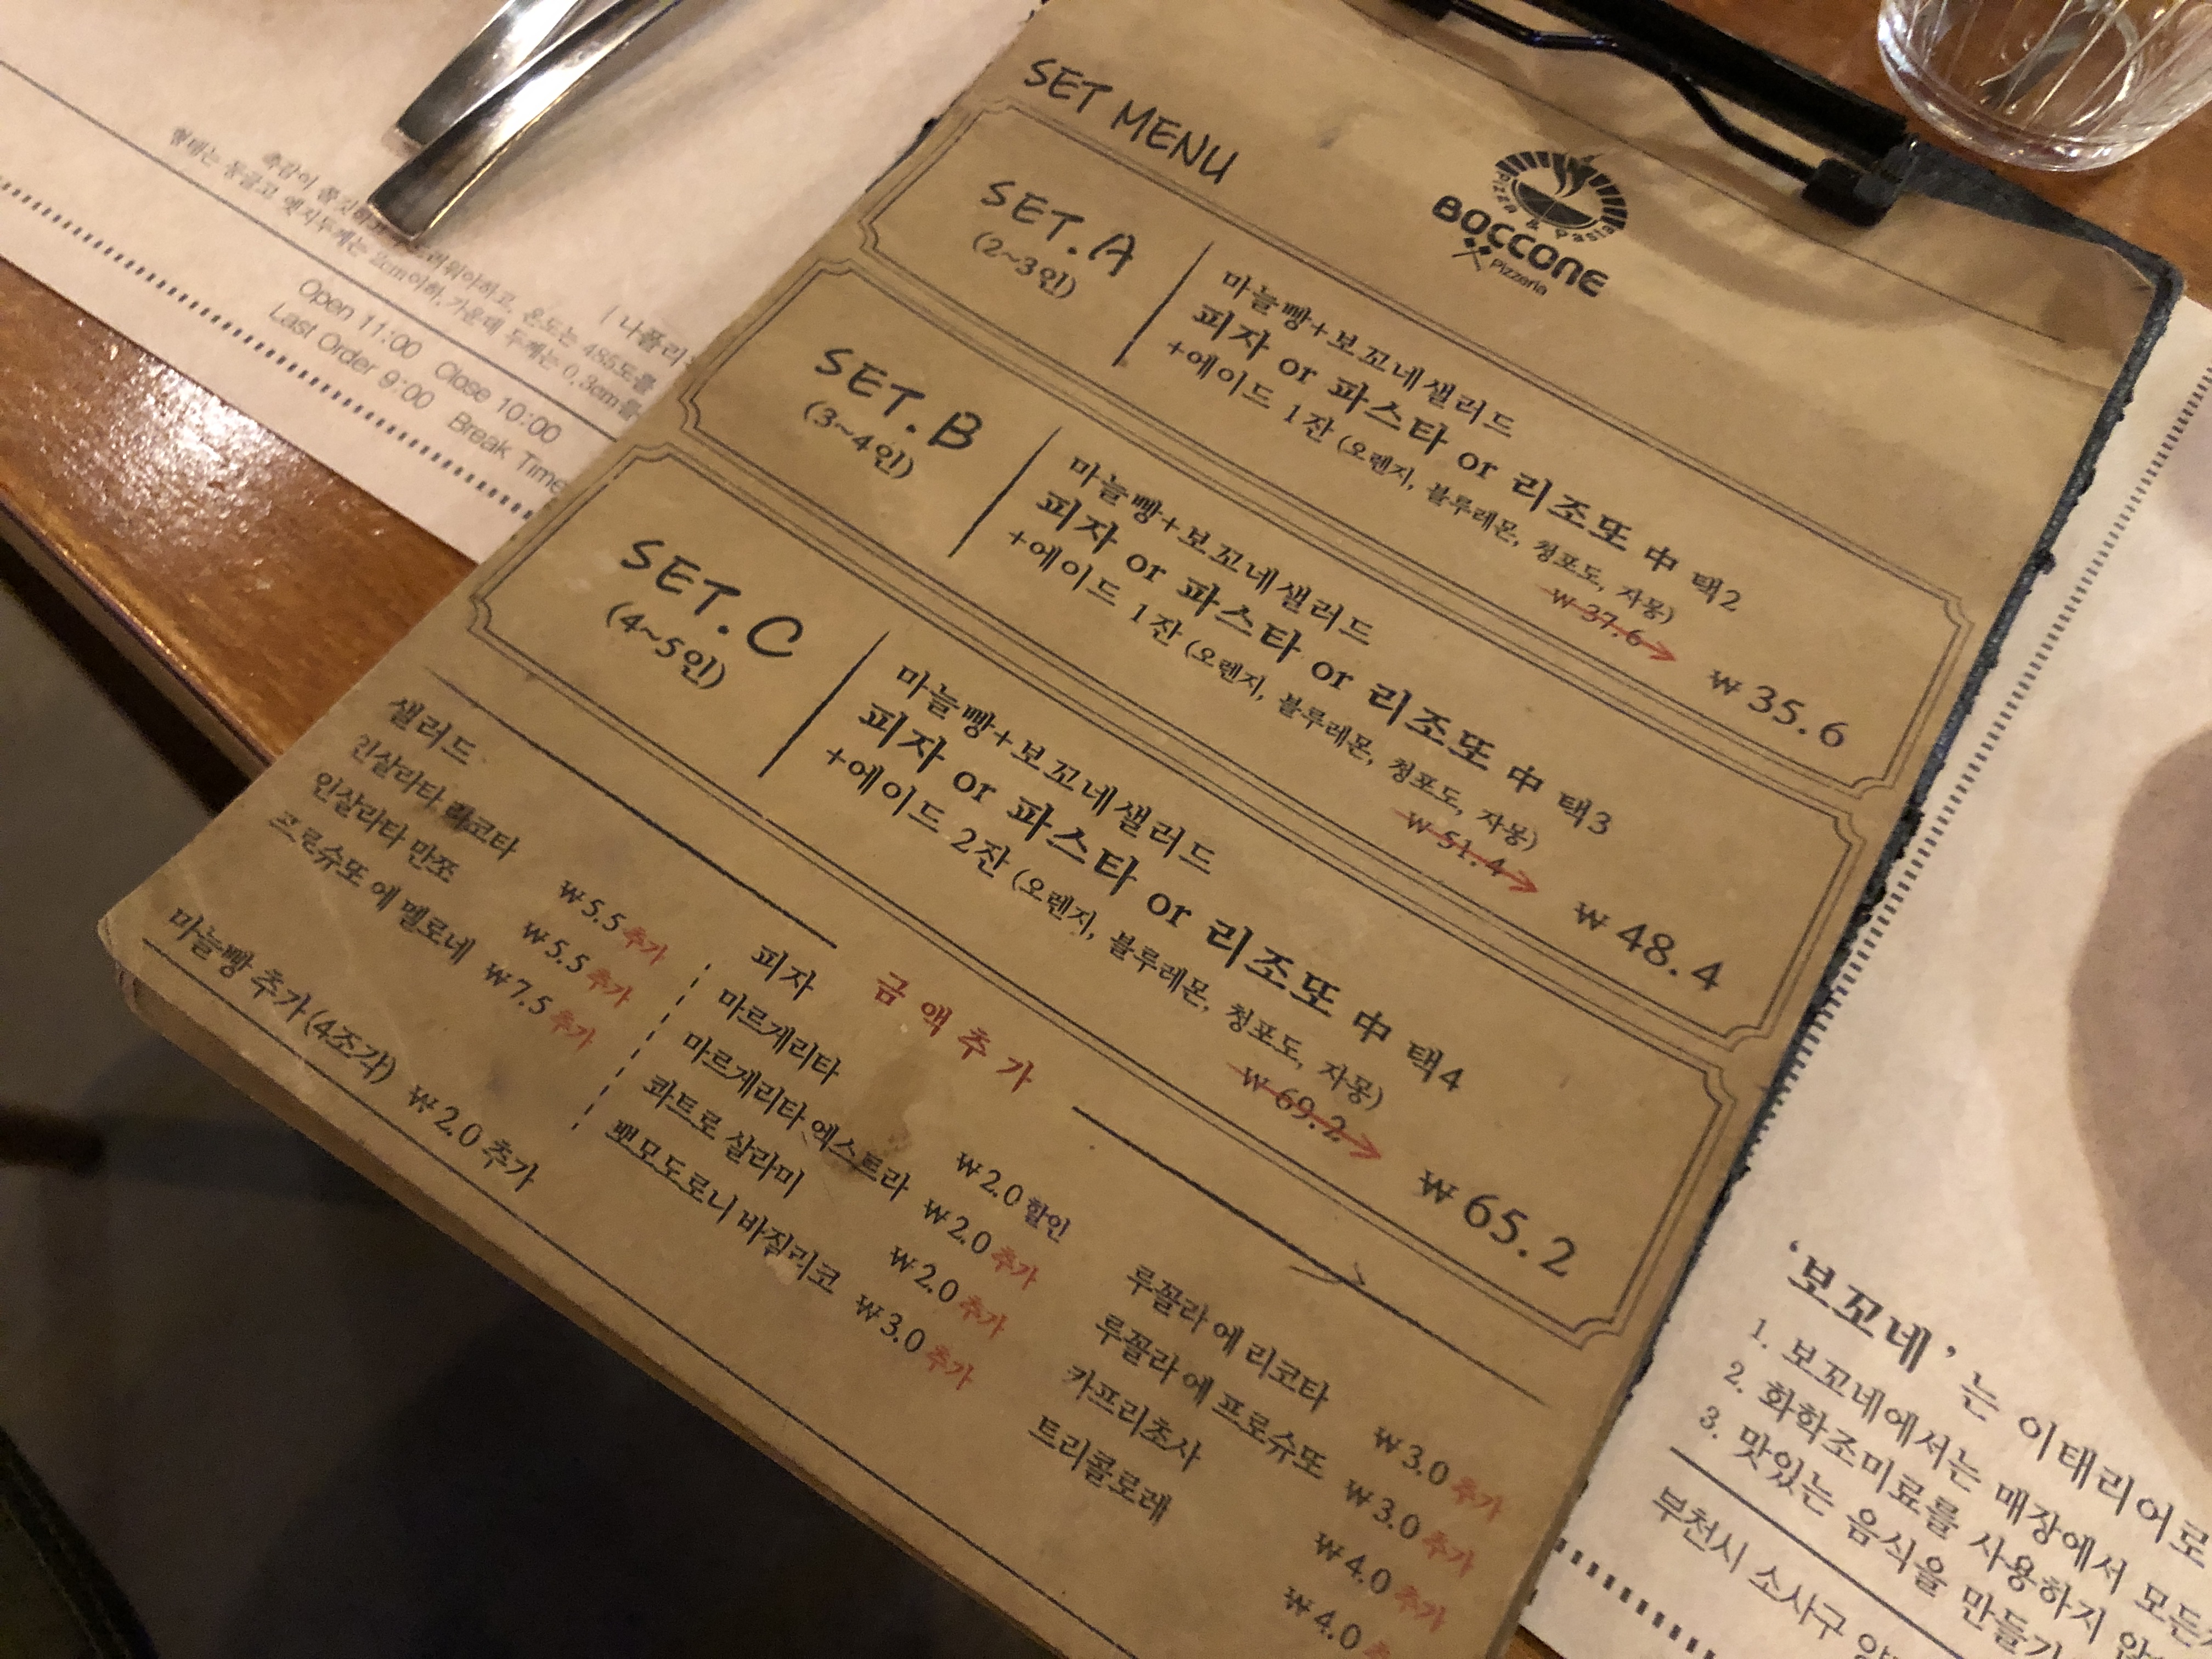 SET MENU
Pizza & Pasta
BOCCONE
Pizzeria
SET. A
(2~3인)
마늘빵+보꼬네샐러드
피자 or 파스타 or 리조또 中 택2
+에이드 1잔 (오렌지, 블루레몬, 청포도, 자몽)
₩ 37.6 → ₩ 35.6
SET. B
(3~4인)
마늘빵+보꼬네샐러드
피자 or 파스타 or 리조또 中 택3
+에이드 1잔 (오렌지, 블루레몬, 청포도, 자몽)
₩ 51.4 → ₩ 48.4
SET. C
(4~5인)
마늘빵+보꼬네샐러드
피자 or 파스타 or 리조또 中 택4
+에이드 2잔 (오렌지, 블루레몬, 청포도, 자몽)
₩ 69.2 → ₩ 65.2
금액추가
샐러드
인살라타 리코타 ₩5.5 추가
인살라타 만쪼 ₩5.5 추가
프로슈또 에 멜로네 ₩7.5 추가
마늘빵 추가 (4조각) ₩2.0 추가
피자
마르게리타 ₩2.0 할인
마르게리타 엑스트라 ₩2.0 추가
콰트로 살라미 ₩2.0 추가
뽀모도로니 바질리코 ₩3.0 추가
루꼴라 에 리코타 ₩3.0 추가
루꼴라 에 프로슈또 ₩3.0 추가
카프리쵸사 ₩4.0 추가
트리콜로레 ₩4.0
| 나폴리
촉감이 쫄깃하 러워야하고, 온도는 485도를
형태는 둥글고 엣지두께는 2cm이하, 가운데 두께는 0.3cm를
Open 11:00 Close 10:00
Last Order 9:00 Break Time
‘보꼬네’는 이태리어로
1. 보꼬네에서는 매장에서 모든
2. 화학조미료를 사용하지 않
3. 맛있는 음식을 만들기
부천시 소사구